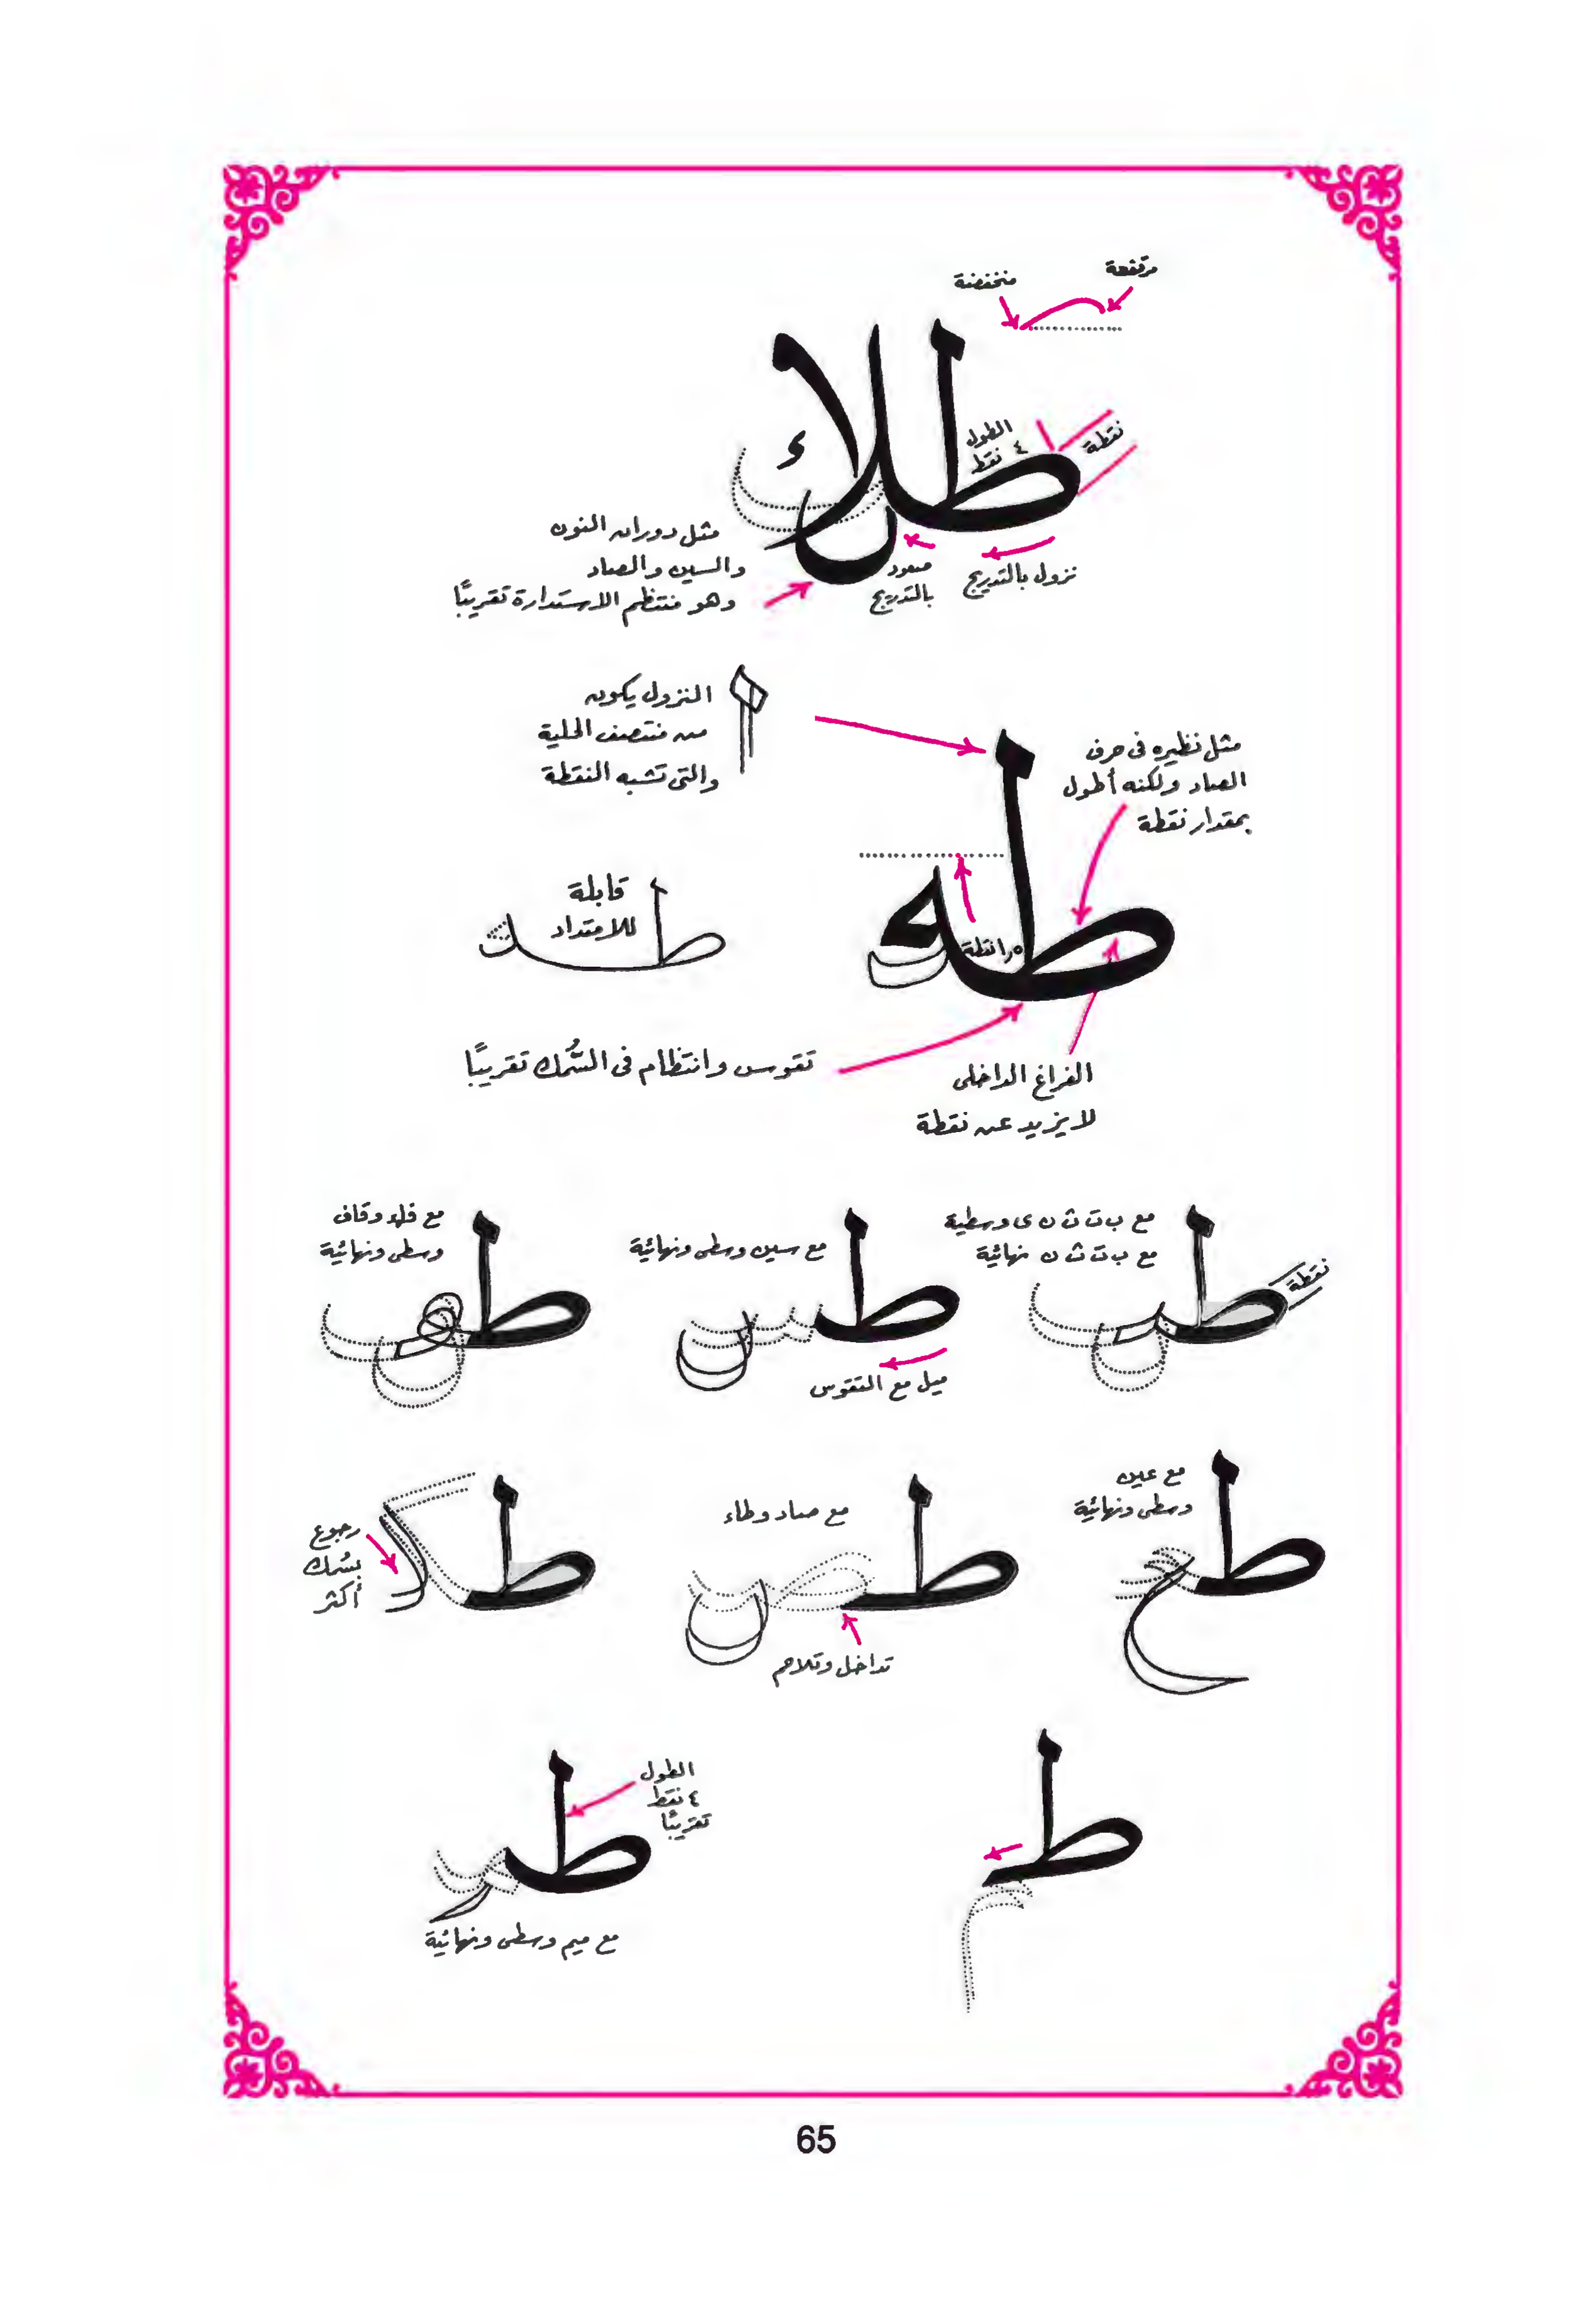 مرتفعة
منخفضة
طلاء
الطول
٤ نقط
نقطة
نزول بالتدريج
صعود
بالتدريج
مثل دوران النون
والسين والصاد
وهو منتظم الاستدارة تقريبًا
النزول يكون
من منتصف الحلية
والتى تشبه النقطة
مثل نظيره فى حرف
الصاد ولكنه أطول
بمقدار نقطة
طه
١٫٥ نقطة
قابلة
للامتداد
تقوس وانتظام فى السُّمك تقريبًا
الفراغ الداخلى
لا يزيد عن نقطة
مع ب ت ث ن ى وسطية
مع ب ت ث ن نهائية
نقطة
مع سين وسطى ونهائية
ميل مع التقوس
مع فاء وقاف
وسطى ونهائية
مع عين
وسطى ونهائية
مع صاد وطاء
تداخل وتلاحم
رجوع
بسُمك
أكثر
الطول
٤ نقط
تقريبًا
مع ميم وسطى ونهائية
65